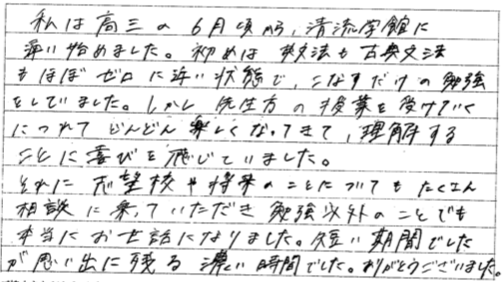 私は高三の6月頃から、清流学館に
通い始めました。初めは英文法も古典文法
もほぼゼロに近い状態で、こなすだけの勉強
をしていました。しかし先生方の授業を受けていく
につれてどんどん楽しくなってきて、理解する
ことに喜びを感じていました。
それに志望校や将来のことについてもたくさん
相談に乗っていただき勉強以外のことでも
本当にお世話になりました。短い期間でした
が思い出に残る濃い時間でした。ありがとうございました。